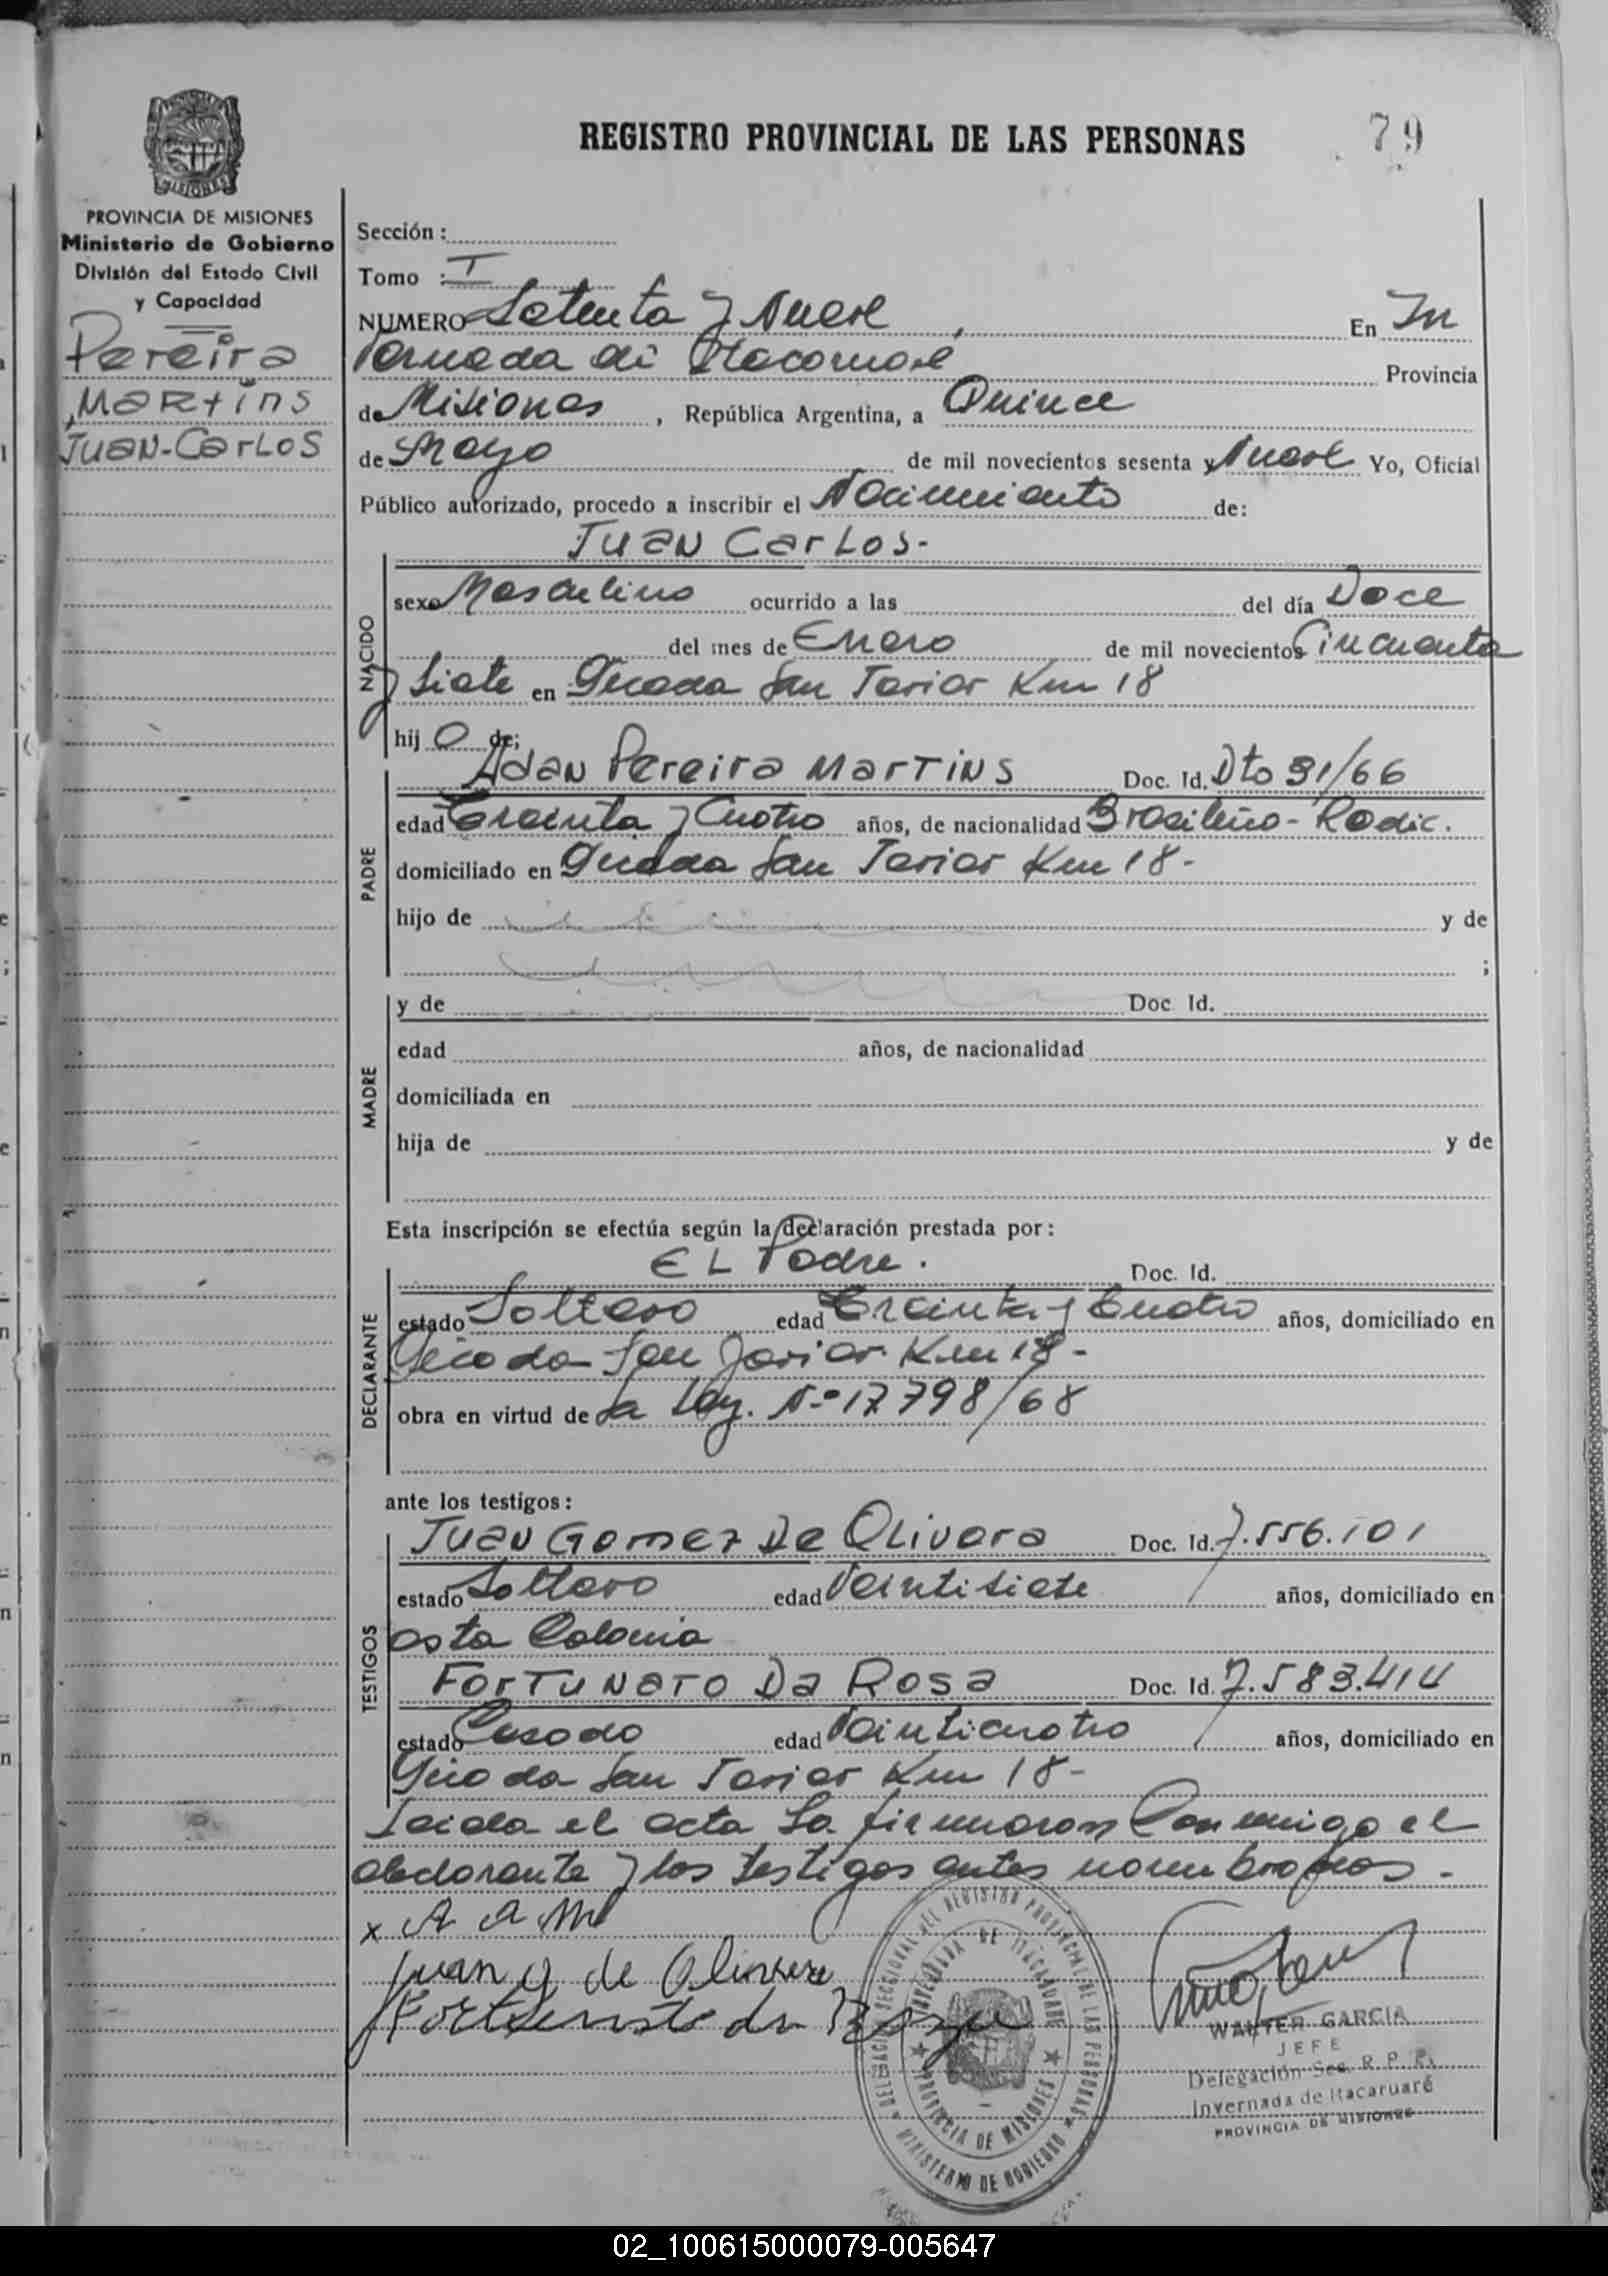 REGISTRO PROVINCIAL DE LAS PERSONAS
79
PROVINCIA DE MISIONES
MISIONES
PROVINCIA DE MISIONES
Ministerio de Gobierno
División del Estado Civil
y Capacidad
Pereira
Martins
Juan-Carlos
Sección :
Tomo : I
NUMERO Setenta y Nueve, En In
vernada de Itacaruare Provincia
de Misiones, República Argentina, a Quince
de Mayo de mil novecientos sesenta y Nueve Yo, Oficial
Público autorizado, procedo a inscribir el Nacimiento de:
NACIDO
Juan Carlos-
sexo Masculino ocurrido a las del día Doce
del mes de Enero de mil novecientos Cincuenta
y Siete en Picada San Javier Km 18
hij o de;
PADRE
Adan Pereira Martins Doc. Id. Dto 31/66
edad Treinta y Cuatro años, de nacionalidad Brasileño- Radic.
domiciliado en Picada San Javier Km 18-
hijo de y de
;
MADRE
y de Doc. Id.
edad años, de nacionalidad
domiciliada en
hija de y de
Esta inscripción se efectúa según la declaración prestada por:
DECLARANTE
El Padre. Doc. Id.
estado Soltero edad Treinta y Cuatro años, domiciliado en
Picada San Javier Km 18-
obra en virtud de La Ley. Nº 17798/68
ante los testigos:
TESTIGOS
Juan Gomez De Olivera Doc. Id. 7.556.101
estado Soltero edad Veintisiete años, domiciliado en
esta Colonia
Fortunato Da Rosa Doc. Id. 7.583.414
estado Casado edad Veinticuatro años, domiciliado en
Picada San Javier Km 18-
Leida el acta La firmaron Conmigo el
declarante y los testigos antes nombrados.
x A A M
Juan G de Olivera
Fortunato da Rosa
DELEGACION SECCIONAL DEL REGISTRO PROVINCIAL DE LAS PERSONAS
MINISTERIO DE GOBIERNO
INVERNADA DE ITACARUARE
PROVINCIA DE MISIONES
WALTER GARCIA
JEFE
Delegación Sec. R. P. P.
Invernada de Itacaruaré
PROVINCIA DE MISIONES
02_100615000079-005647